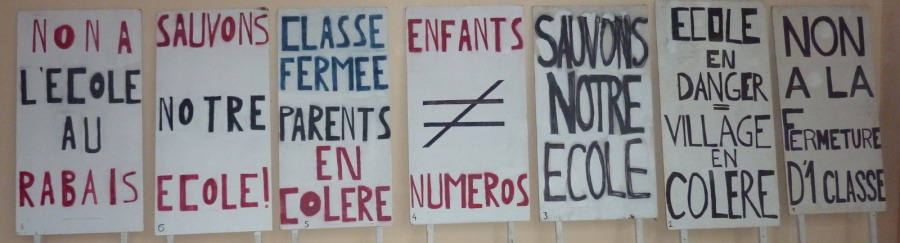 NON A
L'ECOLE
AU
RABAIS
SAUVONS
NOTRE
ECOLE!
6
CLASSE
FERMEE
PARENTS
EN
COLERE
5
ENFANTS
≠
NUMEROS
4
SAUVONS
NOTRE
ECOLE
3
ECOLE
EN
DANGER
=
VILLAGE
EN
COLERE
2
NON
A LA
FERMETURE
D'1 CLASSE